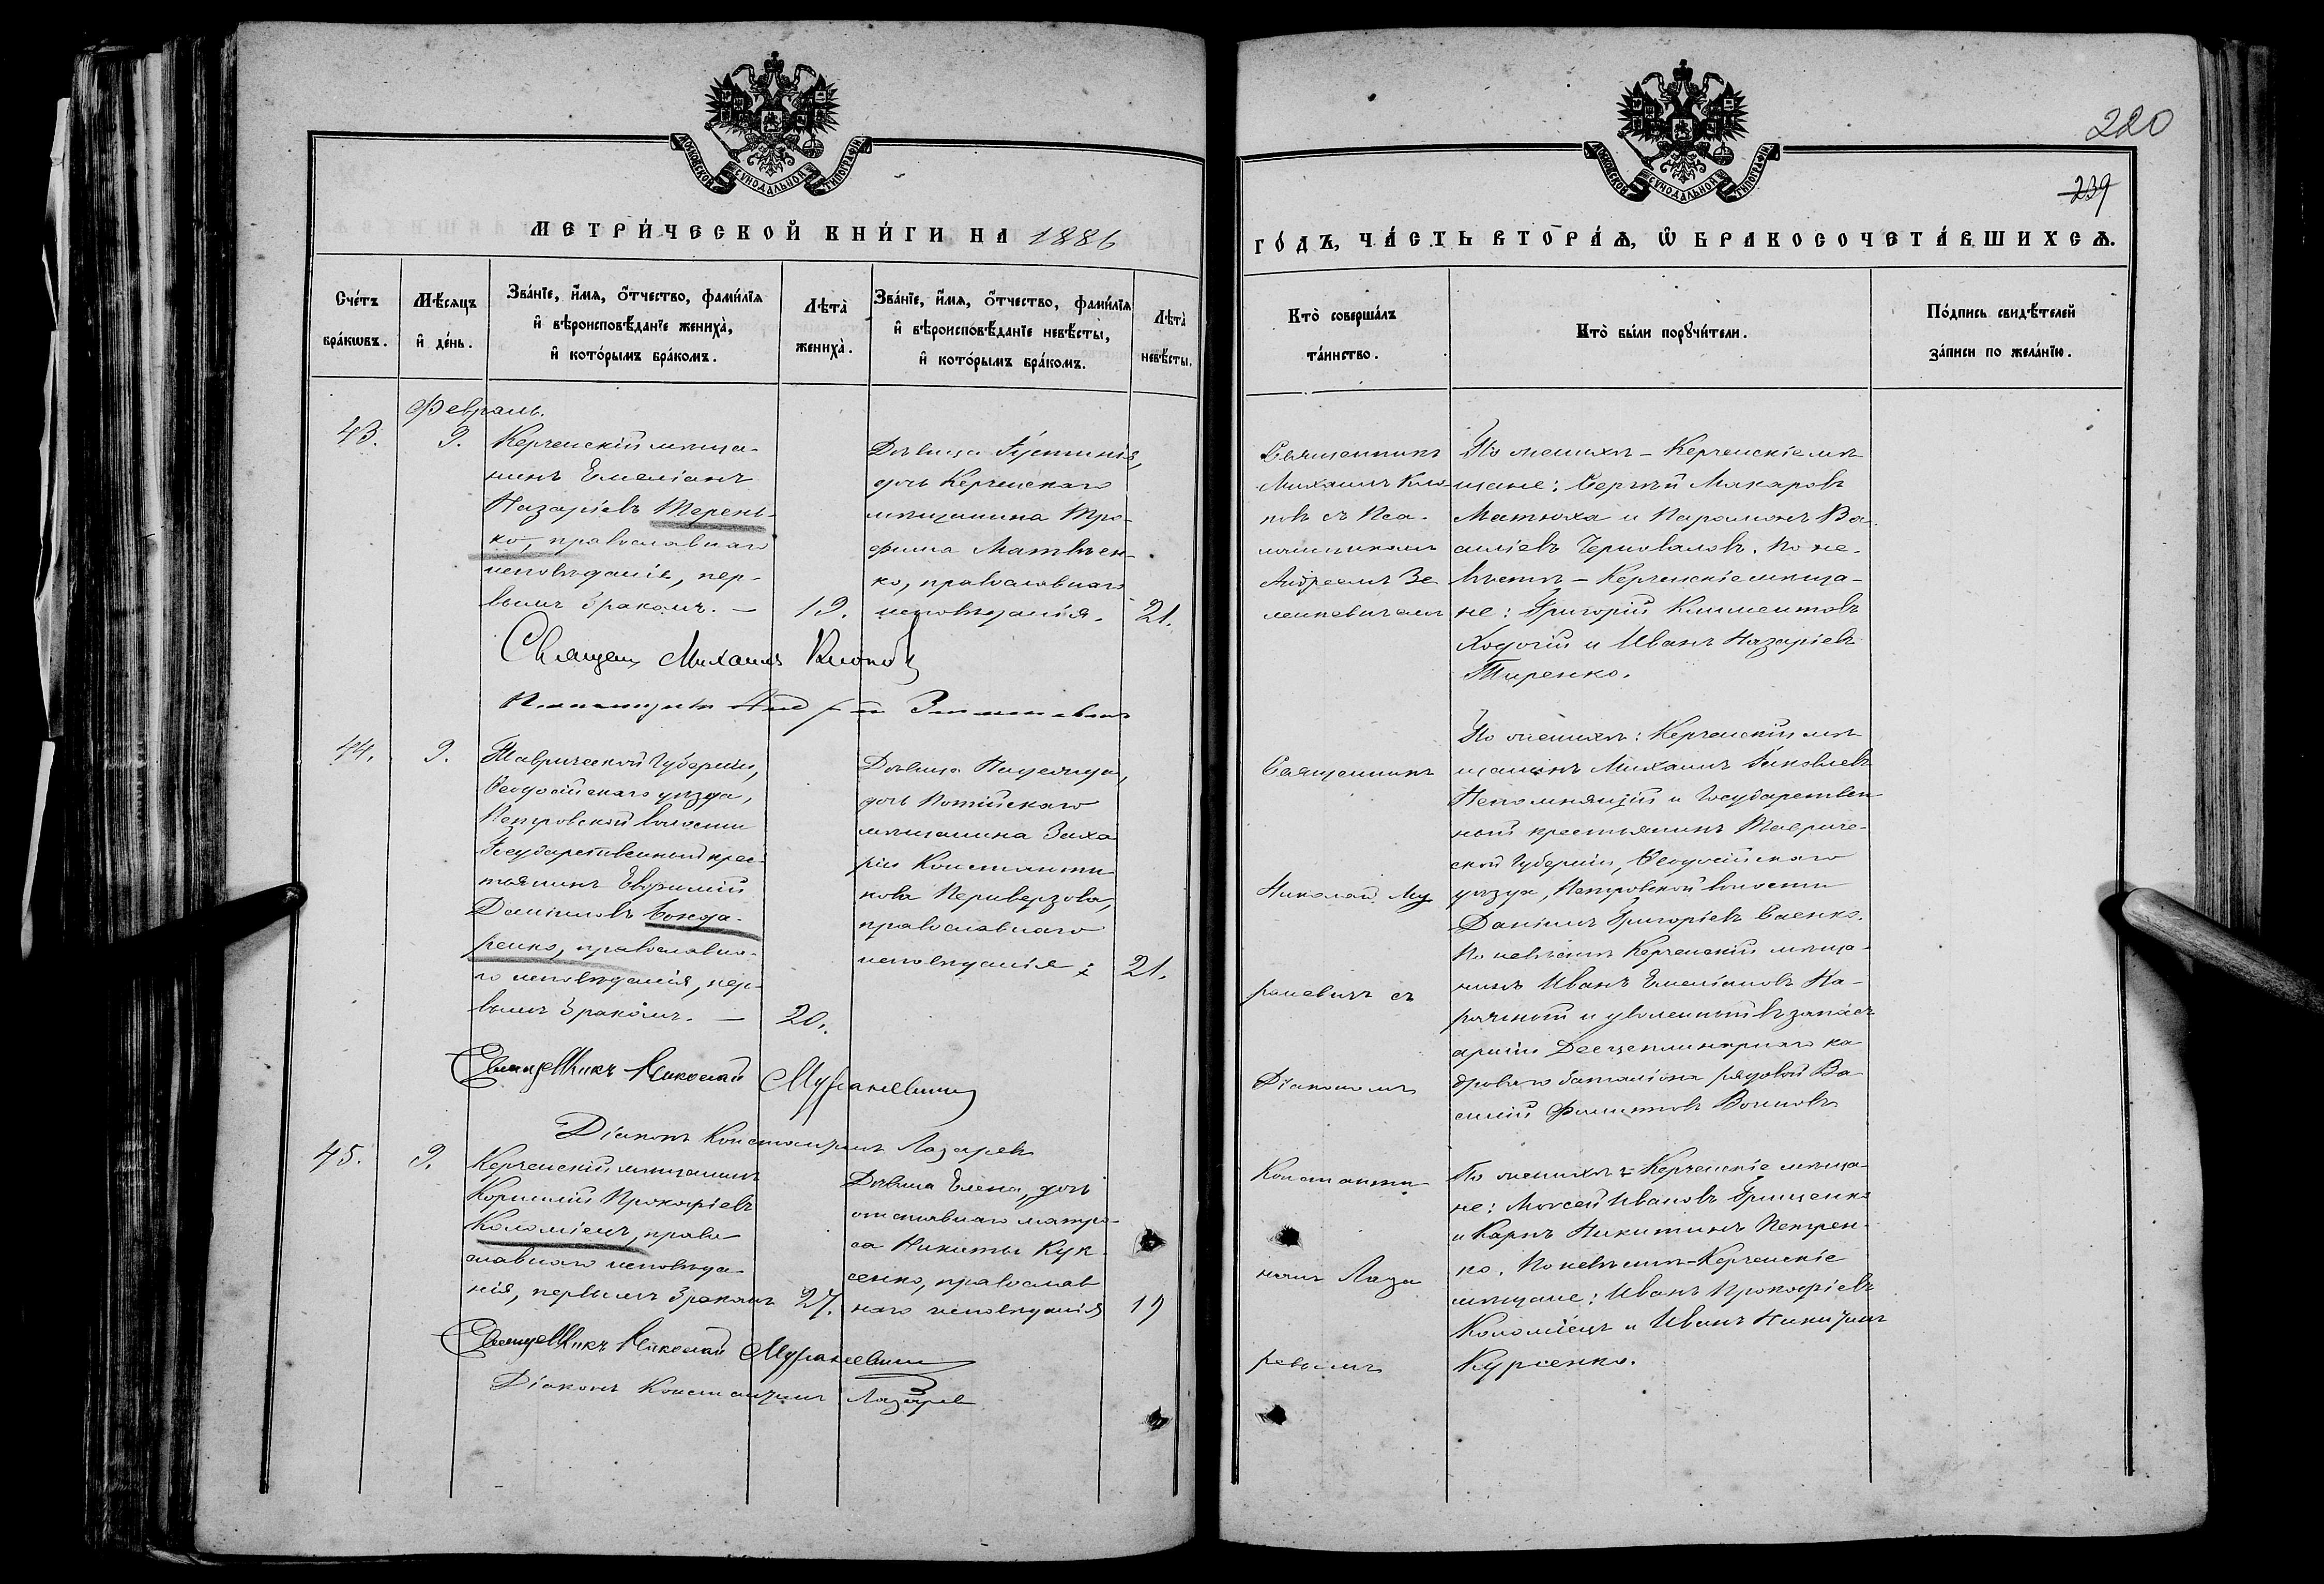 МОСКОВСКОЙ СУНОДАЛЬНОЙ ТИПОГРАФІИ
МЕТРИ́ЧЕСКОЙ КНИ́ГИ НА 1886
Сче́тъ бра́кωвъ.
Мѣ́сяцъ и҆ де́нь.
Зва́нїе, и҆́мя, о҆́тчество, фами́лїя
и҆ вѣроисповѣ́данїе жениха̀,
и҆ кото́рымъ бра́комъ.
Лѣта̀ жениха̀.
Зва́нїе, и҆́мя, о҆́тчество, фами́лїя
и҆ вѣроисповѣ́данїе невѣ́сты,
и҆ кото́рымъ бра́комъ.
Лѣта̀ невѣ́сты.
Февраль.
43.
9.
Керченскій мѣща-
нинъ Емеліанъ
Назаріевъ Терень-
ко, православнаго
исповѣданія, пер-
вымъ бракомъ. —
19.
Дѣвица
дочь Керченскаго
мѣщанина Тро-
фима Матвѣен-
ко, православнаго
исповѣданія.
21.
Священ Михаилъ Клоповъ
44.
9.
Таврической Губерніи,
Ѳеодосійскаго уѣзда,
Петровской волости
Государственный крес-
тьянинъ Евфимій
Даніиловъ Бонда-
ренко, православна-
го исповѣданія, пер-
вымъ бракомъ. —
20.
Дѣвица Надежда,
дочь Потійскаго
мѣщанина Заха
рія Константи
нова Переверзова,
православнаго
исповѣданія
21.
Священникъ Николай Мураневичъ
Діаконъ Константинъ Лазаревъ
45.
9.
Керченскій мѣщанинъ
Корнилій Прокофіевъ
Коломіецъ, право
славнаго исповѣда-
нія, первымъ бракомъ
27.
Дѣвица Елена, дочь
отставнаго матро-
са Никиты Кук
сенко, православ
наго исповѣданія
19
Священникъ Николай Мураневичъ
Діаконъ Константинъ Лазарев
МОСКОВСКОЙ СУНОДАЛЬНОЙ ТИПОГРАФІИ
220
239
ГО́ДЪ, ЧА́СТЬ ВТОРА́Я, Ѡ҆ БРАКОСОЧЕТА́ВШИХСЯ.
Кто̀ соверша́лъ
та́инство.
Кто̀ бы́ли порꙋчи́тели.
По́дпись свидѣ́телей
за́писи по жела́нїю.
Священникъ
Михаилъ Кло
повъ съ Пса-
ломщикомъ
Андреемъ Зе
ленкевичемъ
По женихѣ – Керченскіе мѣ
щане: Сергѣй Макаровъ
Матюха и Парамонъ Ва-
силіевъ Черноваловъ. По не-
вѣстѣ – Керченскіе мѣща-
не: Григорій Климентовъ
Ходочій и Иванъ Назаріевъ
Тиренко.
Священникъ
Николай Му
раневичъ съ
Діакономъ
По женихѣ: Керченскій мѣ
щанинъ Михаилъ Яковлевъ
Непомнящій и Государствен-
ный крестьянинъ Тавриче-
ской Губерніи, Ѳеодосійскаго
уѣзда, Петровской волости
Даніилъ Григоріевъ Саенко.
По невѣстѣ Керченскій мѣща-
нинъ Иванъ Емеліановъ На-
рячный и уволенный въ запасъ
арміи Дисциплинарнаго ка
дроваго баталіона рядовой Ва
силій Филиповъ Волковъ
Константи
номъ Лаза
ревымъ
По женихѣ: Керченскіе мѣща-
не: Моѵсей Ивановъ Грищенко
и Карпъ Никитинъ Петрен-
ко. По невѣстѣ – Керченскіе
мѣщане: Иванъ Прокофіевъ
Коломіецъ и Иванъ Никитинъ
Курсенко.